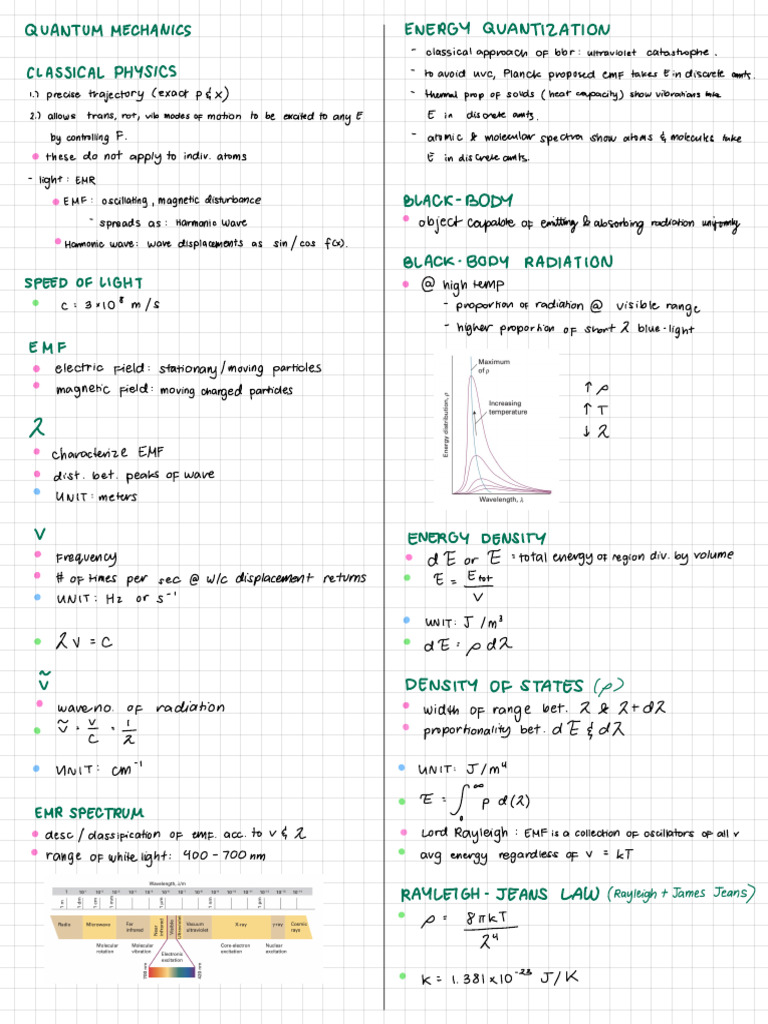 QUANTUM MECHANICS
CLASSICAL PHYSICS
1.) precise trajectory (exact p & x)
2.) allows trans, rot, vib modes of motion to be excited to any E
by controlling F.
• these do not apply to indiv. atoms
- light: EMR
• EMF: oscillating, magnetic disturbance
- spreads as: Harmonic wave
• Harmonic wave: wave displacements as sin/cos f(x).
SPEED OF LIGHT
• c: 3×10⁸ m/s
EMF
• electric field: stationary/moving particles
• magnetic field: moving charged particles
λ
• characterize EMF
• dist. bet. peaks of wave
• UNIT: meters
V
• Frequency
• # of times per sec @ w/c displacement returns
• UNIT: Hz or s⁻¹
• λv = C
ṽ
• wave no. of radiation
• ṽ = v/c = 1/λ
• UNIT: cm⁻¹
EMR SPECTRUM
• desc/classification of emf. acc. to v & λ
• range of white light: 400 - 700 nm
Wavelength, λ/m
1 m 1 dm 1 cm 1 mm 1 μm 1 nm 1 pm
Radio Microwave Far infrared Near infrared Visible Ultraviolet Vacuum ultraviolet X-ray γ-ray Cosmic rays
Molecular rotation Molecular vibration Electronic excitation Core electron excitation Nuclear excitation
700 nm 420 nm
ENERGY QUANTIZATION
- classical approach of bbr: ultraviolet catastrophe.
- to avoid uvc, Planck proposed emf takes E in discrete amts.
- thermal prop of solids (heat capacity) show vibrations take
E in discrete amts.
- atomic & molecular spectra show atoms & molecules take
E in discrete amts.
BLACK-BODY
• object capable of emitting & absorbing radiation uniformly
BLACK-BODY RADIATION
• @ high temp
- proportion of radiation @ visible range
- higher proportion of short λ blue-light
Maximum
of ρ
Increasing
temperature
Energy distribution, ρ
Wavelength, λ
↑ ρ
↑ T
↓ λ
ENERGY DENSITY
• dE or E = total energy of region div. by volume
• E = Etot/V
• UNIT: J/m³
• dE = ρ dλ
DENSITY OF STATES (ρ)
• width of range bet. λ & λ+dλ
• proportionality bet. dE & dλ
• UNIT: J/m⁴
• E = ∫₀^∞ ρ d(λ)
• Lord Rayleigh: EMF is a collection of oscillators of all v
• avg energy regardless of v = kT
RAYLEIGH-JEANS LAW (Rayleigh + James Jeans)
• ρ = 8πkT/λ⁴
• k = 1.381×10⁻²³ J/K